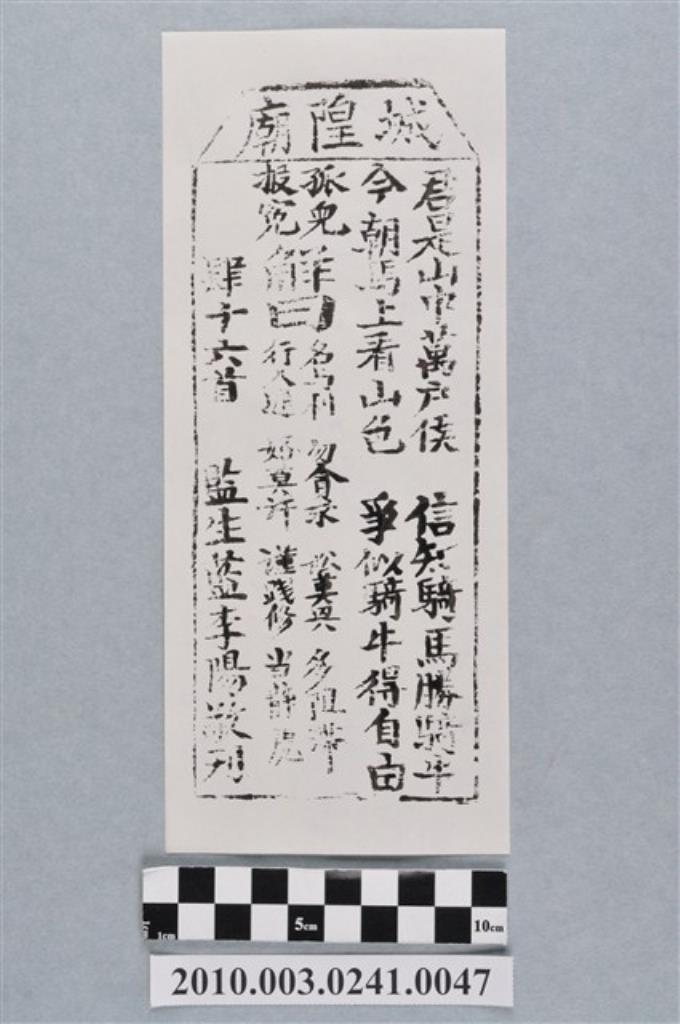 城隍廟
君是山中萬户侯 信知騎馬勝騎牛
今朝馬上看山色 爭似騎牛得自由
孤児 解曰 名与利 勿貪求 訟莫兴 多阻滯
报冤 行人遲 婚莫許 謹踐修 当静処
肆十六首 監生藍李陽敬刋
5cm
10cm
1cm
2010.003.0241.0047